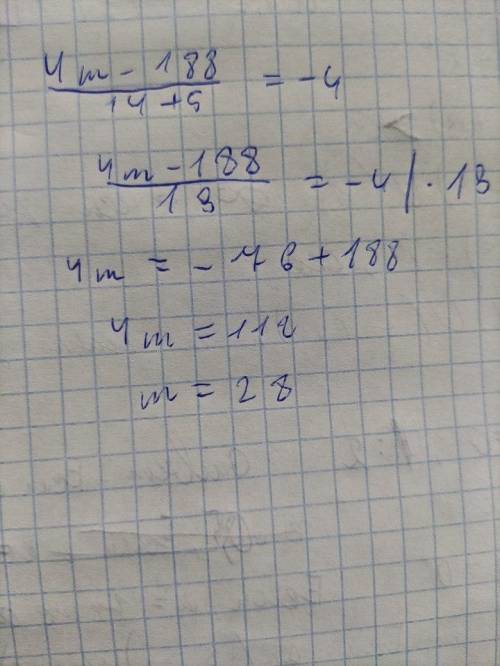 4m - 188 / 14 + 5 = -4
4m - 188 / 19 = -4 | · 19
4m = -76 + 188
4m = 112
m = 28